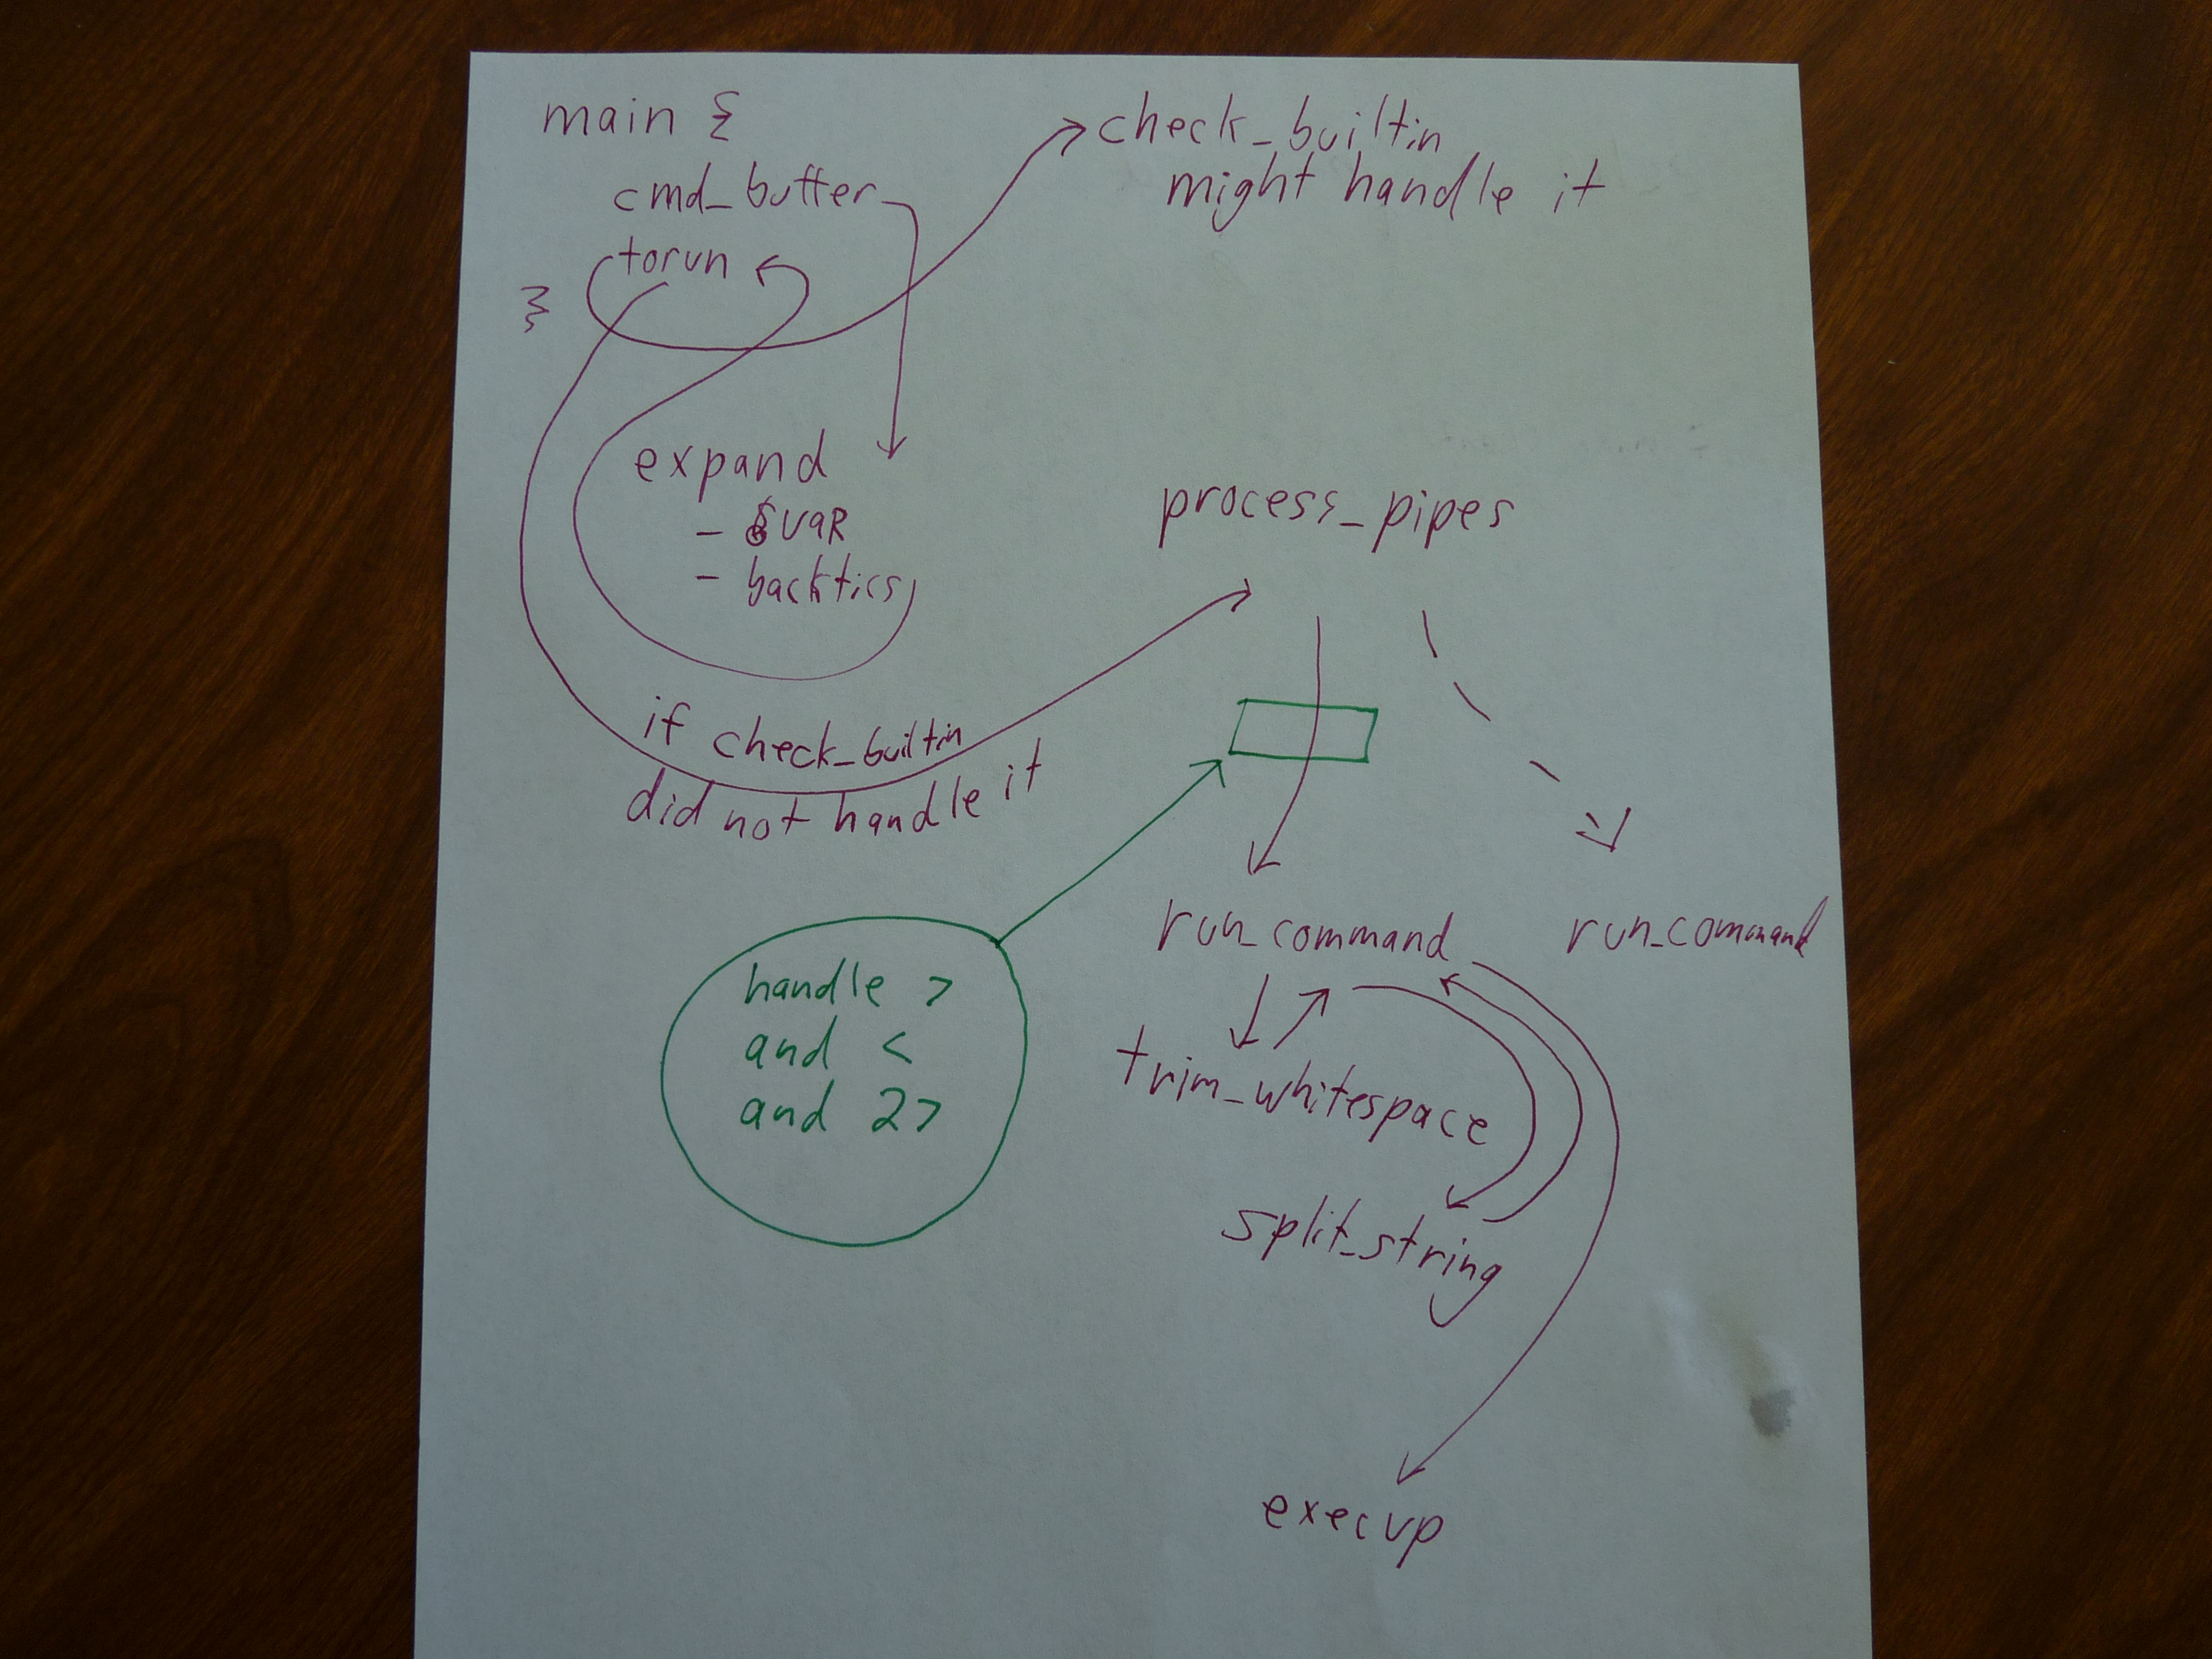 main {
cmd_buffer
torun
}
check_builtin
might handle it
expand
- $VAR
- backtics
if check_builtin
did not handle it
process_pipes
handle >
and <
and 2>
run_command
run_command
trim_whitespace
split_string
execvp